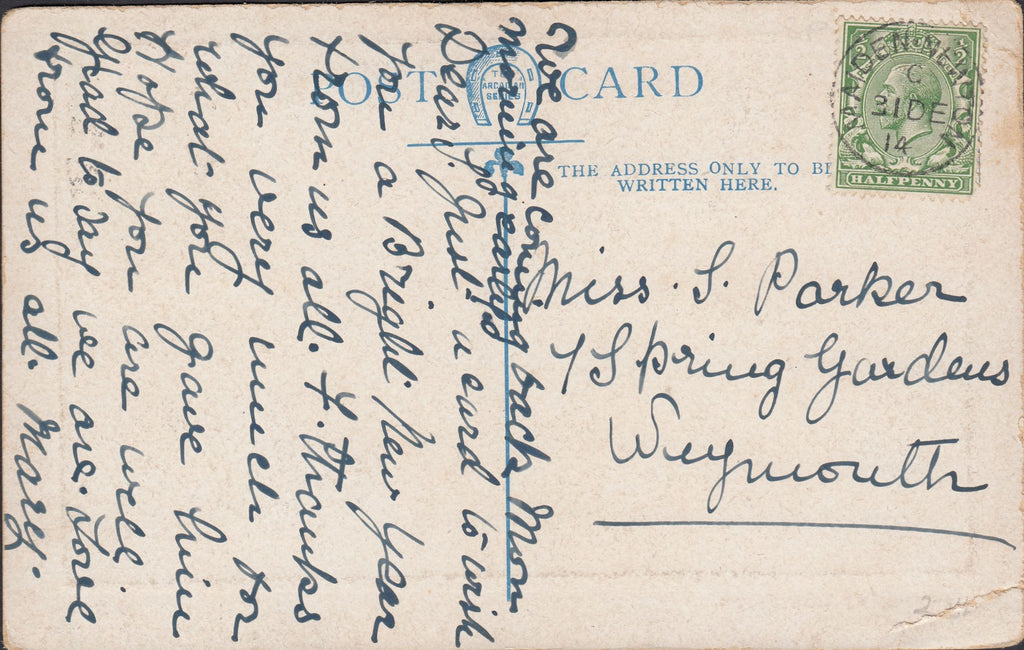 POST CARD
THE
ARCADIAN
SERIES
THE ADDRESS ONLY TO BE
WRITTEN HERE.
C
31 DE
14
HALFPENNY
Miss. S. Parker
1 Spring Gardens
Weymouth
We are coming back Mon
morning early
Just a card to wish
You a Bright New Year
from us all. F. thanks
you very much for
what you gave him
Hope you are well
Glad to say we are. Love
from us all. Mary.